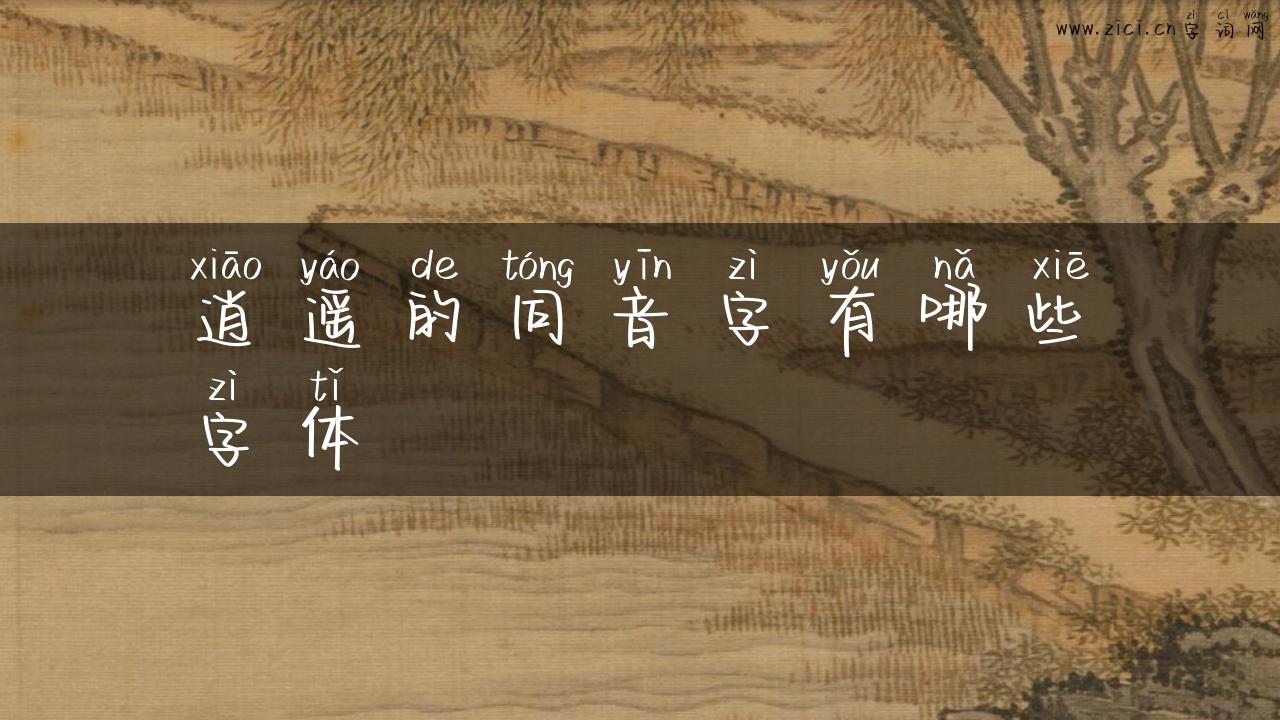 zì cí wǎng
www.zici.cn字词网
xiāo yáo de tóng yīn zì yǒu nǎ xiē
逍遥的同音字有哪些
zì tǐ
字体